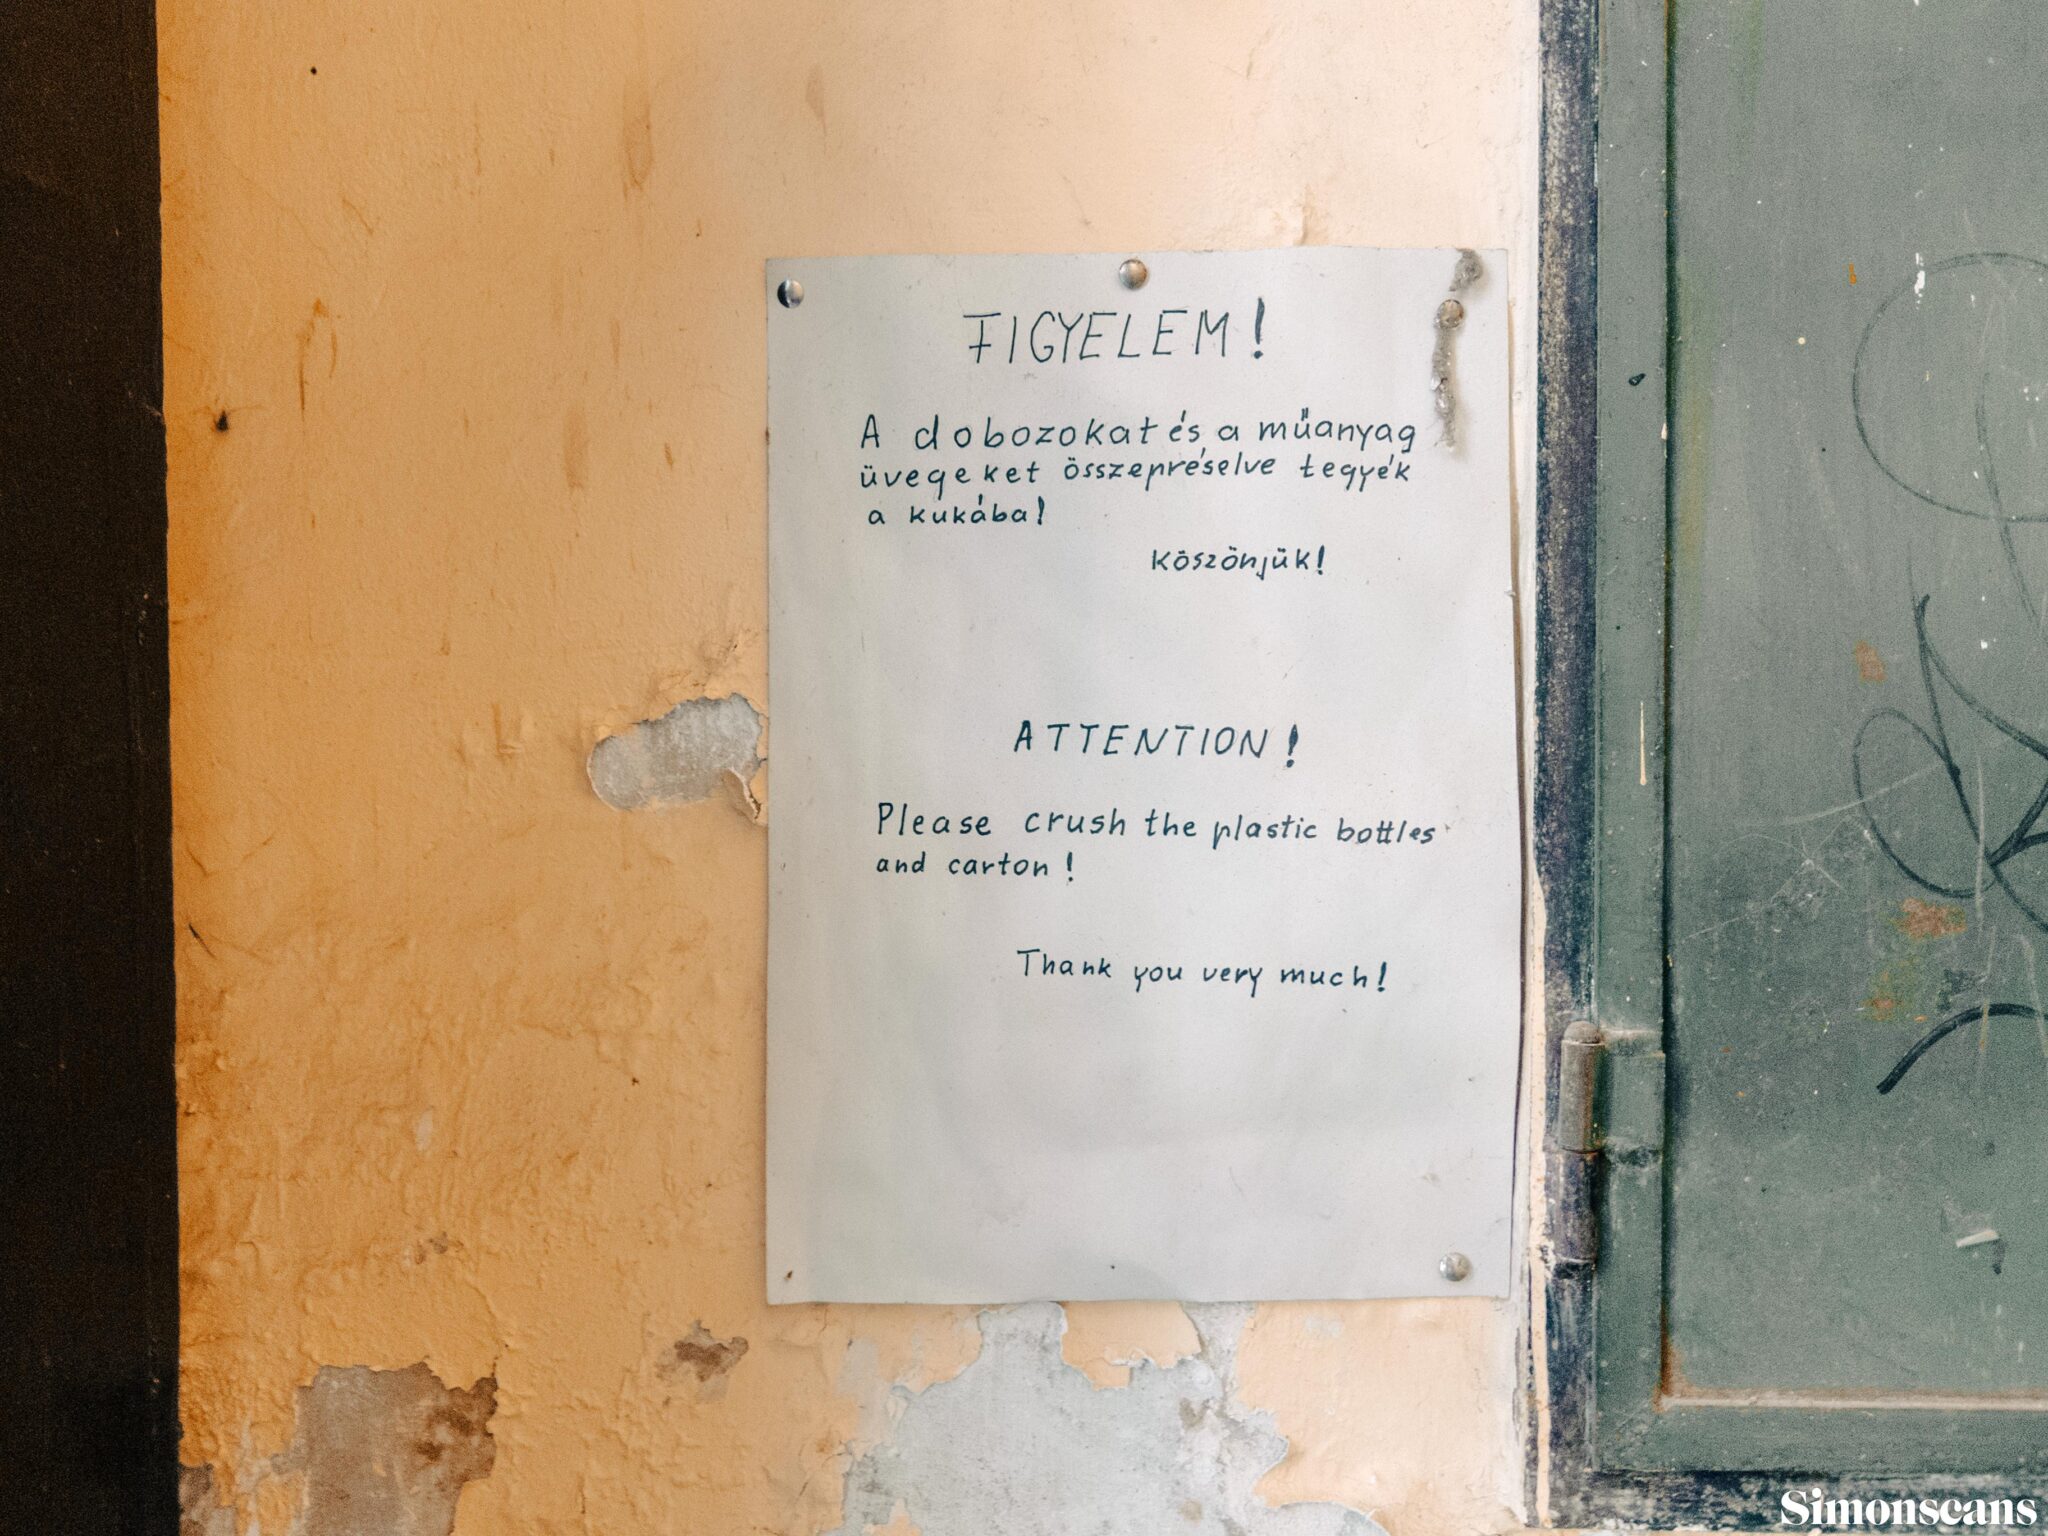 FIGYELEM!
A dobozokat és a műanyag
üvegeket összepréselve tegyék
a kukába!
Köszönjük!
ATTENTION!
Please crush the plastic bottles
and carton!
Thank you very much!
Simonscans